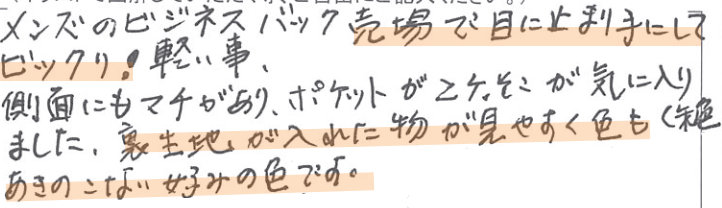 メンズのビジネスバック売場で目に止まり手にして
ビックリ！軽い事、
側面にもマチがあり、ポケットが2ケ、そこが気に入り
ました、裏生地が入れた物が見やすく色も(朱色
あきのこない好みの色です。